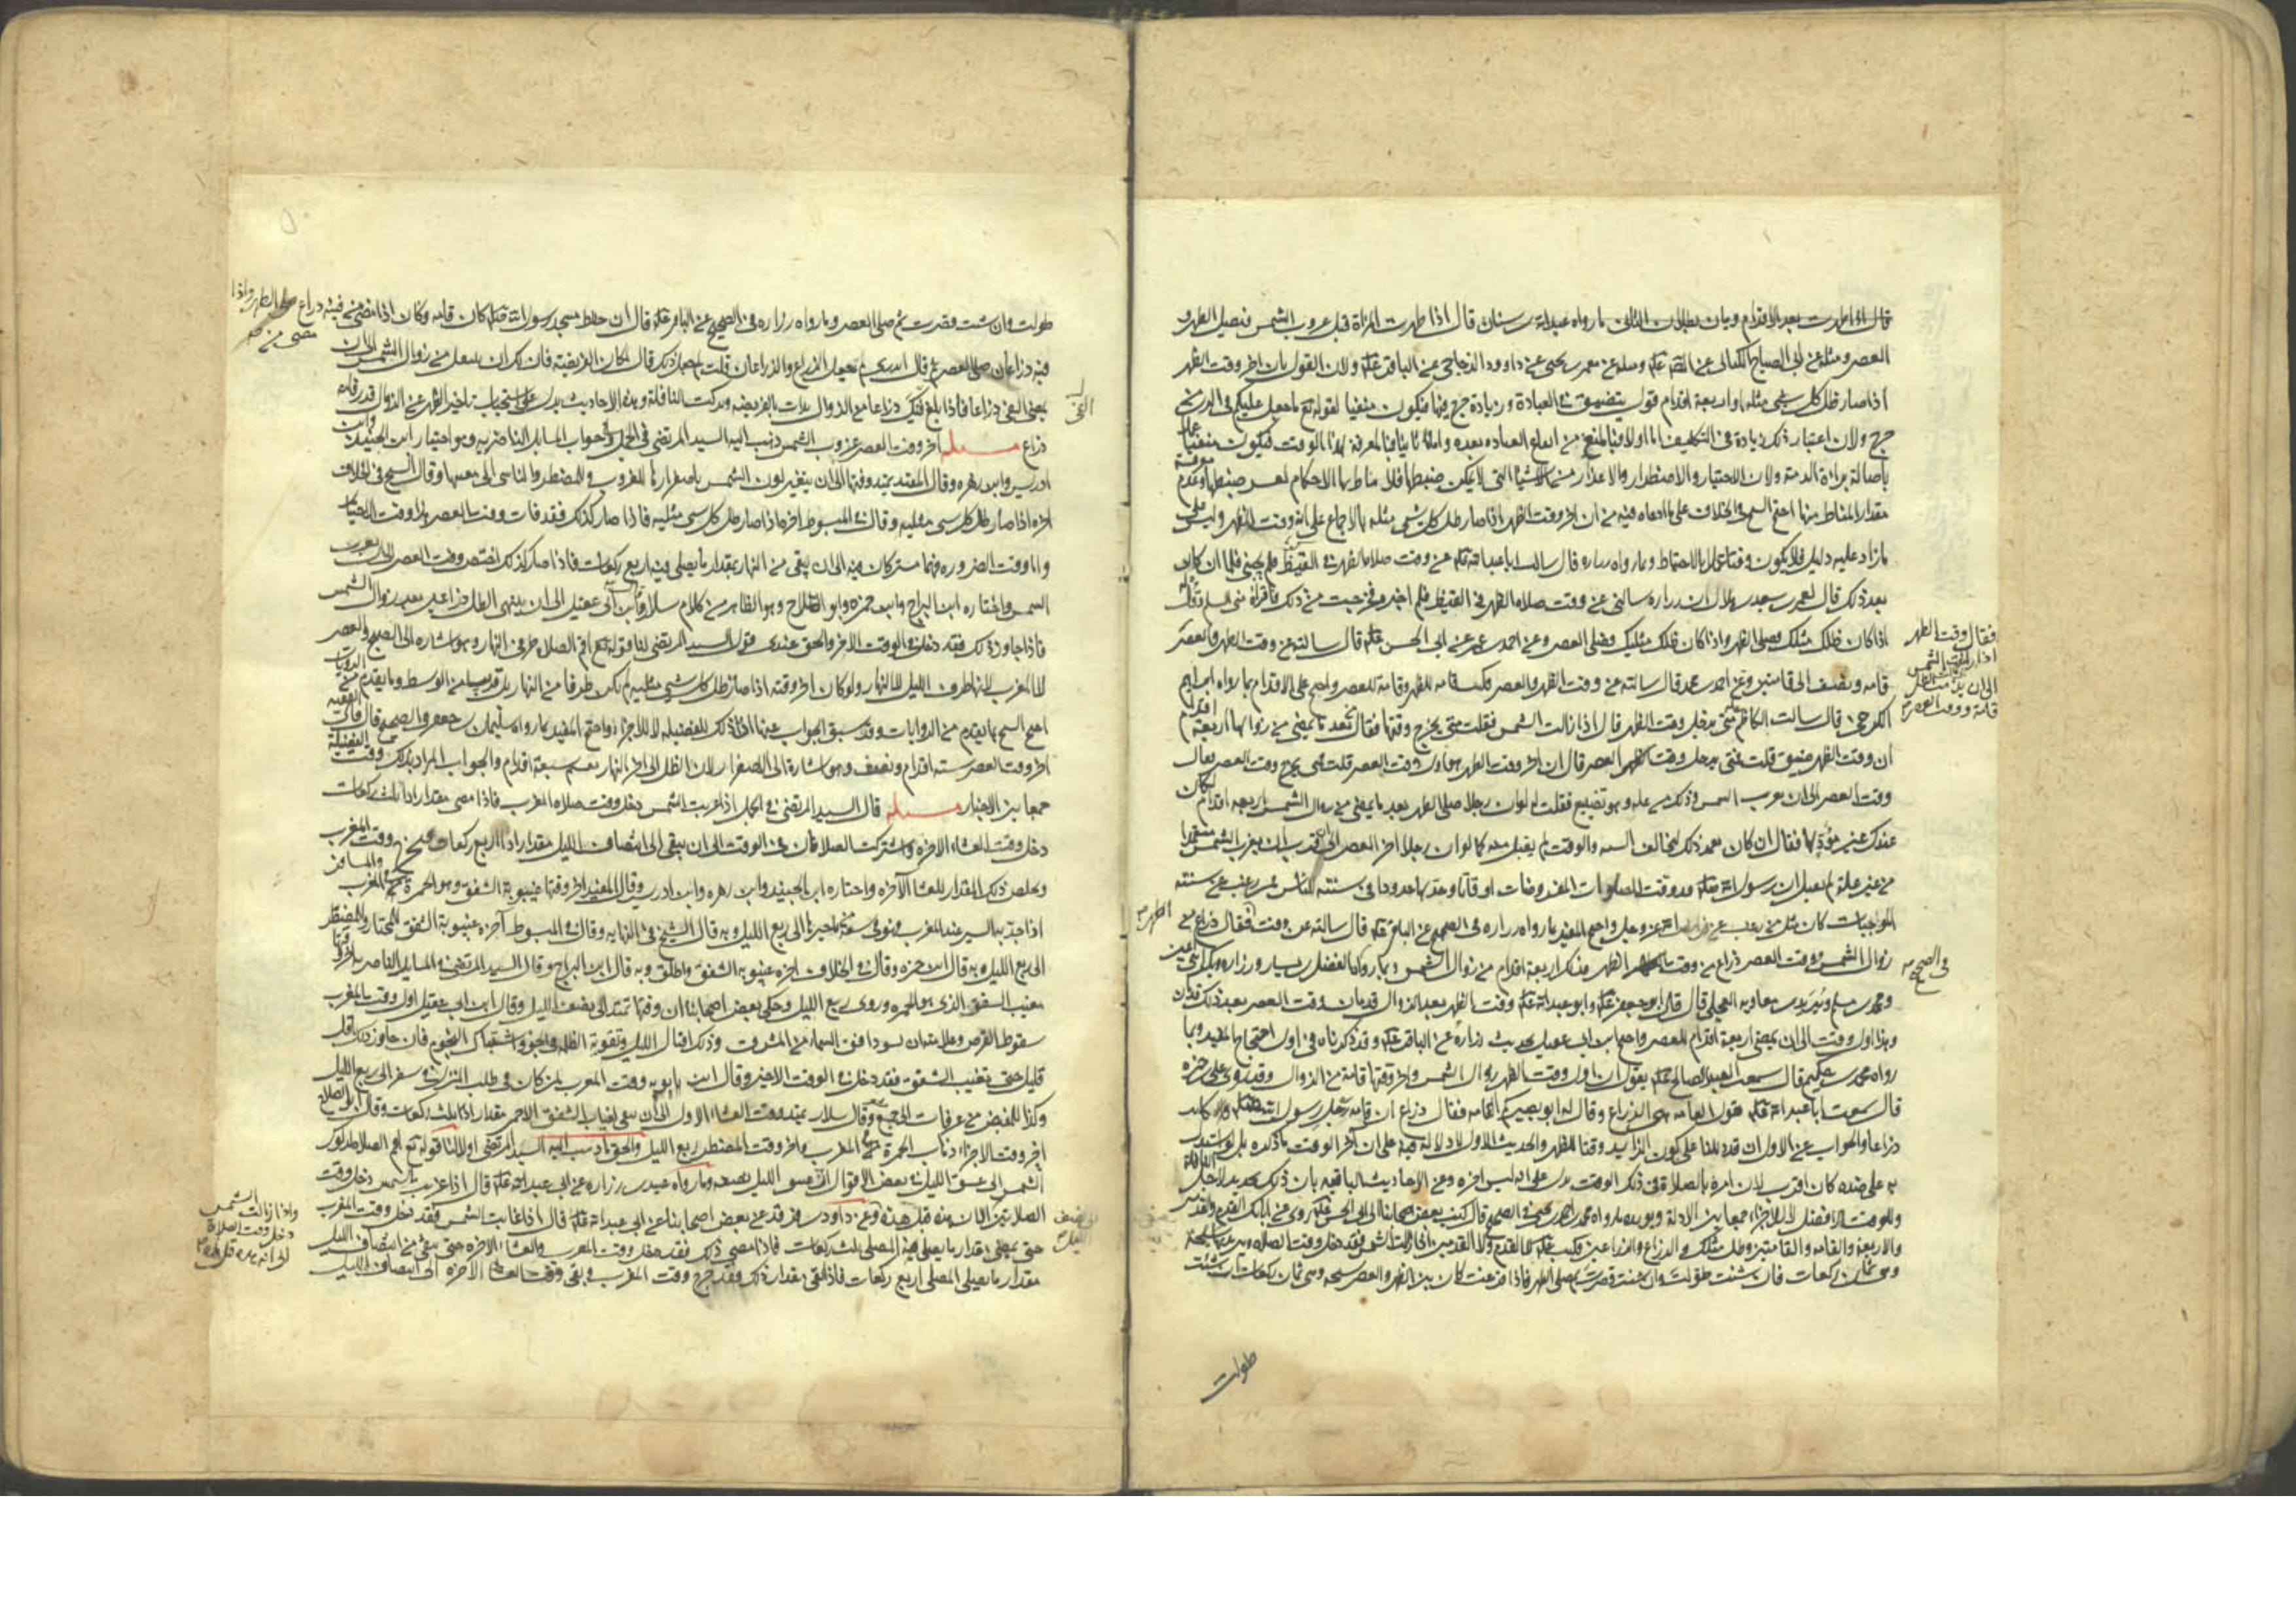 قال اذا طهرت بعد الاقدام وبان بطلان الثانى ما رواه عبدالله بن سنان قال اذا طهرت المراة قبل غروب الشمس فتصل الظهر و
العصر ومثله عن ابى الصباح الكنانى عن الصادق ومثله عن معمر بن يحيى عن داوود الدجاجى عن الباقر ولان القول بان اخر وقت الظهر
اذا صار ظل كل شى مثله او اربعة اقدام قول بتضييق فى العبادة وزيادة حرج فيها فيكون منفيا لقوله تع ما جعل عليكم فى الدين من
حرج ولان اعتبار ذلك زيادة فى التكليف اما اولا فبالمنع من ايقاع العباده بعده واما ثانيا فبالمعرفة لهذا الوقت فيكون منفيا
باصالة براءة الذمة ولان الاختيار والاضطرار والاعذار من الاشياء التى لا يمكن ضبطها فلا يناط بها الاحكام لعسر ضبطها وعدم
مقدار المناط منها احتج الشيخ فى الخلاف على ما ادعاه فيه من ان اخر وقت الظهر اذا صار ظل كل شى مثله بالاجماع على انه وقت للظهر وليس على
ما زاد عليه دليل فلا يكون وقتا عملا بالاحتياط وما رواه زراره قال سالت اباعبدالله عن وقت صلاة الظهر فى القيظ فلم يجبنى فلما ان كان
بعد ذلك قال لعمر بن سعيد بن هلال ان زراره سالنى عن وقت صلاة الظهر فى القيظ فلم اخبره فحرجت من ذلك فاقراه منى السلم وقل
اذا كان ظلك مثلك فصل الظهر واذا كان ظلك مثليك فصل العصر وعن احمد بن عمر عن ابى الحسن قال سالته عن وقت الظهر والعصر
فقال وقت الظهر
اذا زاغت الشمس
الى ان يذهب الظل
قامة ووقت العصر
قامه ونصف الى قامتين وعن احمد بن محمد قال سالته عن وقت الظهر والعصر فكتب قامه للظهر وقامة للعصر واحتج على الاقدام بما رواه ابراهيم
الكرخى قال سالت الكاظم متى يدخل وقت الظهر قال اذا زالت الشمس فقلت متى يخرج وقتها فقال بعد ما يمضى من زوالها اربعة اقدام
ان وقت الظهر ضيق قلت فمتى يدخل وقت العصر قال ان اخر وقت الظهر هو اول وقت العصر قلت فمتى يخرج وقت العصر فقال
وقت العصر الى ان تغرب الشمس وذلك من عله وهو تضييع فقلت له لو ان رجلا صلى الظهر بعد ما يمضى من زوال الشمس اربعه اقدام اكان
عندك غير مؤد لها فقال ان كان تعمد ذلك ليخالف السنه والوقت لم يقبل منه كما لو ان رجلا اخر العصر الى قرب ان تغرب الشمس متعمدا
من غير علة لم يقبل ان رسول الله قد وقت للصلوات المفروضات اوقاتا وحد لها حدودا فى سنته للناس فمن رغب عن سنته
الموجبات كان مثل من رغب عن فرايض الله عز وجل واحتج المفيد بما رواه زراره فى الصحيح عن الباقر قال سالته عن وقت
الظهر فقال ذراع من
زوال الشمس ووقت العصر ذراع من وقت الظهر فذلك اربعة اقدام من زوال الشمس وما رواه الفضيل بن يسار وزراره وبكير بن اعين
فى الصحيح
ومحمد بن مسلم وبريد بن معاويه العجلى قال قال ابو جعفر وابو عبدالله وقت الظهر بعد الزوال قدمان ووقت العصر بعد ذلك قدمان
وهذا اول وقت الى ان يمضى اربعة اقدام للعصر واحتج ابن ابى عقيل بحديث زراره عن الباقر وقد ذكرناه فى اول احتجاج المفيد وبما
رواه محمد بن حكيم قال سمعت العبد الصالح يقول ان اول وقت الظهر زوال الشمس واخر وقتها قامة من الزوال وقد روى على بن حمزه
قال سمعت اباعبدالله يقول القامه هى الذراع وقال له ابو بصير كم القامه فقال ذراع ان قامة رحل رسول الله كانت
ذراعا والجواب عن الاول ان قد دللنا على كون الزايد وقتا للظهر والحديث الاول لا دلالة فيه على ان اخر الوقت ما ذكره بل لو استدل
به على ضده كان اقرب لان امره بالصلاة فى ذلك الوقت يدل على انه ليس اخره وعن الاحاديث الباقيه بان ذلك تحديد لاجل النافلة
وللوقت الافضل لا للاجزاء جمعا بين الادلة ويويده ما رواه محمد بن احمد بن يحيى فى الصحيح قال كتب بعض اصحابنا الى ابى الحسن روى عن ابائك القدم والقدمين
والاربعة والقامه والقامتين وظل مثلك والذراع والذراعين فكتب لا القدم ولا القدمين اذا زالت الشمس فقد دخل وقت الصلاة وبين يديها سبحة
وهى ثمان ركعات فان شئت طولت وان شئت قصرت ثم صل الظهر فاذا فرغت كان بين الظهر والعصر سبحه وهى ثمان ركعات ان شئت
طولت
طولت وان شئت قصرت ثم صل العصر وما رواه زراره فى الصحيح عن الباقر قال ان حائط مسجد رسول الله كان قامه وكان اذا مضى من فيئه ذراع صلى الظهر واذا
مضى من
فيه ذراعان صلى العصر ثم قال اتدرى لم جعل الذراع والذراعان قلت لم جعل ذلك قال لمكان الفريضة فان لك ان تتنفل من زوال الشمس الى ان
يمضى الفى ذراعا فاذا بلغ فيئك ذراعا من الزوال بدات بالفريضه وتركت النافلة وهذه الاحاديث يدل على استحباب تاخير الظهر عن الزوال قدر قامه
ذراع مسئله اخر وقت العصر غروب الشمس ذهب اليه السيد المرتضى فى الجمل وجواب المسايل الناصريه وهو اختيار ابن الجنيد وابن
ادريس وابن زهره وقال المفيد يمتد وقتها الى ان يتغير لون الشمس باصفرارها للغروب وللمضطر والناسى الى مغيبها وقال الشيخ فى الخلاف
اخره اذا صار ظل كل شى مثليه وقال فى المبسوط اخره اذا صار ظل كل شى مثليه فاذا صار كذلك فقد فات وقت العصر هذا وقت الاختيار
واما وقت الضروره فهما مشتركان فيه الى ان يبقى من النهار بمقدار ما يصلى فيه اربع ركعات فاذا صار كذلك اختص وقت العصر الى ان تغرب
الشمس واختاره ابن البراج وابن حمزه وابو الصلاح وهو الظاهر من كلام سلار وقال ابن ابى عقيل الى ان ينتهى الظل ذراعين بعد زوال الشمس
فاذا جاوز ذلك فقد دخل فى الوقت الاخر والحق عندى قول السيد المرتضى لنا قوله تع اقم الصلاة طرفى النهار وهو اشاره الى الصبح والعصر
لا المغرب لانها طرف الليل لا النهار ولو كان اخر وقته اذا صار ظل كل شى مثليه لم يكن طرفا من النهار بل قريبا من الوسط وما يقدم من الروايات
احتج الشيخ بما تقدم من الروايات وقد سبق الجواب عنها اذ ذلك للفضيله لا للاجزاء واحتج المفيد بما رواه سليمان بن جعفر فى الصحيح قال قال الفقيه
اخر وقت العصر سته اقدام ونصف وهو اشارة الى الاصفرار لان الظل الى اخر النهار يقسم سبعة اقدام والجواب المراد بذلك وقت الفضيلة
جمعا بين الاخبار مسئله قال السيد المرتضى فى الجمل اذا غربت الشمس دخل وقت صلاه المغرب فاذا مضى مقدار اداء ثلث ركعات
دخل وقت العشاء الاخره واشتركت الصلاتان فى الوقت الى ان يبقى الى انتصاف الليل مقدار اداء اربع ركعات فيخرج وقت المغرب
ويخلص ذلك المقدار للعشاء الاخره واختاره ابن الجنيد وابن زهره وابن ادريس وقال المفيد اخر وقتها غيبوبة الشفق وهو الحمرة فى المغرب والمسافر
اذا جد به السير عند المغرب فهو فى سعة من تاخيرها الى ربع الليل وبه قال الشيخ فى النهايه وقال فى المبسوط اخره غيبوبة الشفق للمختار وللمضطر
الى ربع الليل وبه قال ابن حمزه وقال فى الخلاف اخره غيبوبه الشفق واطلق وبه قال ابن البراج وقال السيد المرتضى فى المسايل الناصريه اخر وقتها
مغيب الشفق الذى هو الحمره وروى ربع الليل وحكى بعض اصحابنا ان وقتها تمتد الى نصف الليل وقال ابن ابى عقيل اول وقت المغرب
سقوط القرص وعلامته ان يسود افق السماء من المشرق وذلك اقبال الليل وتقوية الظلمه فى الجو واشتباك النجوم فان جاوز ذلك باقل
قليل حتى يغيب الشفق فقد دخل فى الوقت الاخير وقال ابن بابويه وقت المغرب لمن كان فى طلب المنزل فى سفر الى ربع الليل
وكذا للمفيض من عرفات الى جمع وقال سلار يمتد وقت العشاء الاول الى ان يبقى لغياب الشفق الاحمر مقدار اداء ثلث ركعات وقال ابو الصلاح
اخر وقت الاجزاء ذهاب الحمرة من المغرب واخر وقت المضطر ربع الليل والحق ما ذهب اليه السيد المرتضى اولا لنا قوله تع اقم الصلاة لدلوك
الشمس الى غسق الليل فى بعض الاقوال ان غسق الليل نصفه وما رواه عبيد بن زراره عن ابى عبدالله قال اذا غربت الشمس دخل وقت
الصلاتين الا ان هذه قبل هذه وعن داود بن فرقد عن بعض اصحابنا عن ابى عبدالله قال اذا غابت الشمس فقد دخل وقت المغرب
واذا زالت الشمس
دخل وقت الصلاة
حتى يمضى مقدار ما يصلى المصلى ثلث ركعات فاذا مضى ذلك فقد دخل وقت المغرب والعشاء الاخره حتى يبقى من انتصاف الليل
مقدار ما يصلى المصلى اربع ركعات فاذا بقى مقدار ذلك فقد خرج وقت المغرب وبقى وقت العشاء الاخره الى انتصاف الليل